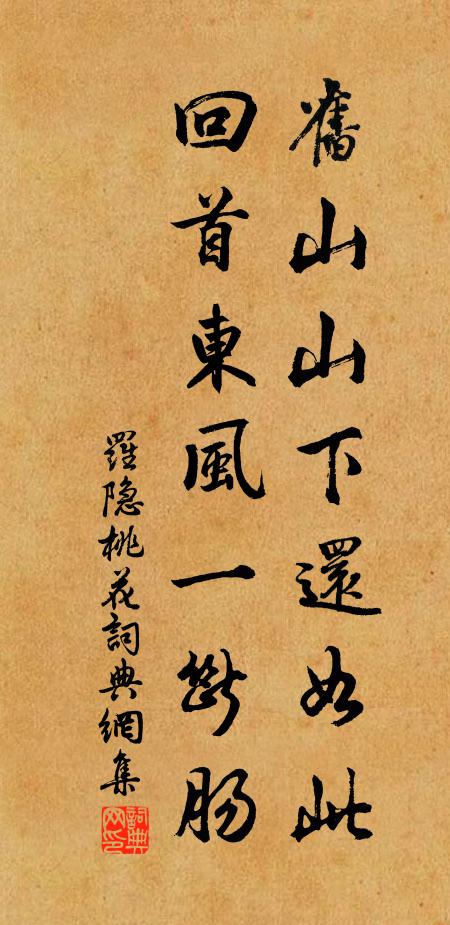 舊山山下還如此
回首東風一斷肠
羅隐桃花詞典網集
詞典网印